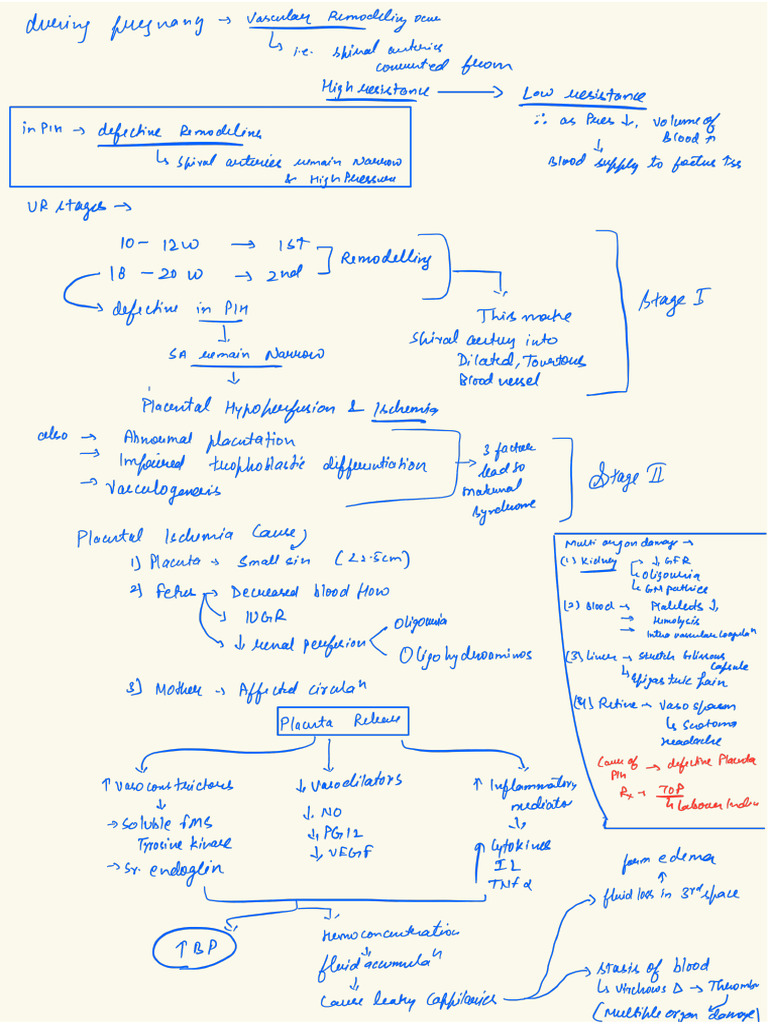 during pregnancy → Vascular Remodeling occur
↳ i.e. spiral arteries
converted from
High resistance → Low resistance
∴ as Pres ↓, volume of
Blood ↑
↓
Blood supply to foetus ↑ss
in PIH → defective Remodeling
↳ spiral arteries remain Narrow
& High Pressure
VR stages →
10 - 12 W → 1st
18 - 20 W → 2nd
Remodelling
→ defective in PIH
↓
SA remain Narrow
↓
This make
Spiral artery into
Dilated, Tourtous
Blood vessel
Stage I
Placental Hypoperfusion & Ischemia
also → Abnormal placentation
→ Impaired trophoblastic differentiation
→ Vasculogenesis
→ 3 factor
lead to
maternal
syndrome
Stage II
Placental Ischemia Cause
1) Placenta → Small sin (22.5cm)
2) Fetus → Decreased blood flow
→ IUGR
→ ↓ renal perfusion
Oligouria
Oligohydroaminos
3) Mother → Affected circulaⁿ
Multi organ damage →
(1) Kidney → ↓ GFR
↳ oligouria
↳ GM pathies
(2) Blood → Platelets ↓,
→ Hemolysis
→ Intra vascular coagulaⁿ
(3) Liver → stretch Glissons
capsule
↳ Epigastric pain
(4) Retine → vaso spasm
↳ Scotoma
headache
Cause of
PIH → defective Placenta
Rx → TOP
↳ Labour Induⁿ
Placenta Release
↑ Vasoconstrictors
↓
→ Soluble fMS
Tyrosine kinase
→ Sr. endoglin
↓ Vasodilators
↓ NO
↓ PGI2
↓ VEGF
↑ Inflammatory
mediator
↓
↑ Cytokines
IL
TNF α
↑ BP
Hemoconcentration
↓
fluid accumulaⁿ
↓
Cause leaky Cappilaries
form edema
↑
fluid loss in 3rd space
→ stasis of blood
↳ Virchows Δ → Thrombi
(Multiple organ damage)